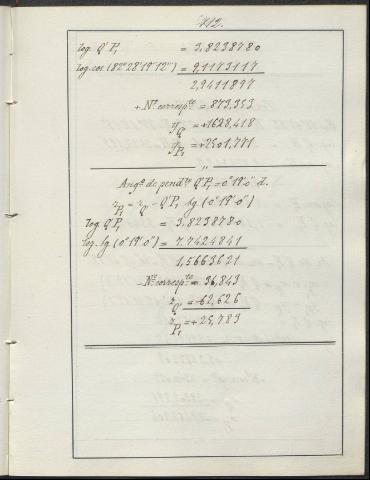 412.
log. Q'P₁ = 3,8238780
log. cos. (82°28'19"12"') = 9,1173117
2,9411897
+ Nº correspte = 873,353
y Q' = +1628,418
y P₁ = +2501,771
"
Angº de pendte Q'P₁ = 0°19'0" d.
z P₁ = z Q' - Q'P₁ tg (0°19'0")
log Q'P₁ = 3,8238780
log. tg (0°19'0") = 7,7424841
1,5663621
- Nº correspte = 36,843
z Q' = 62,626
z P₁ = +25,783